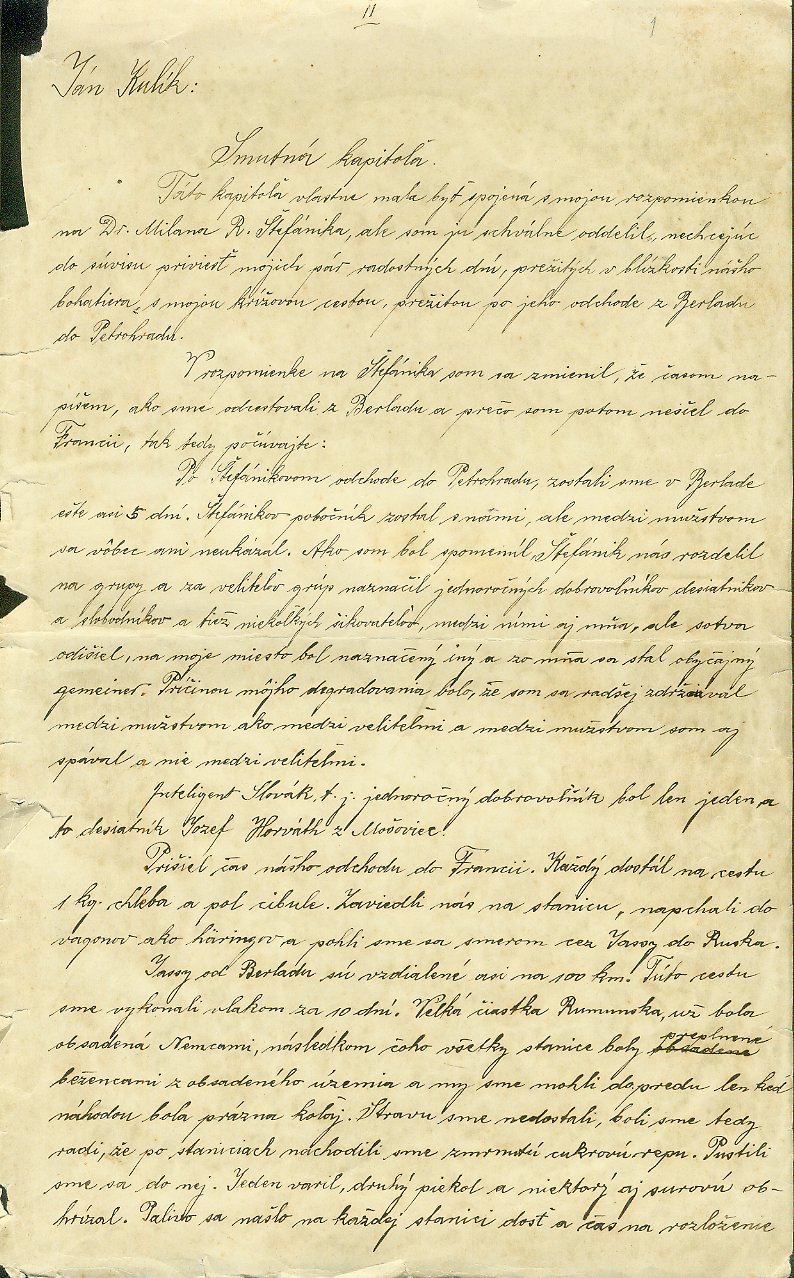 II
1
Ján Kulík:
Smutná kapitola.
Táto kapitola vlastne mala byť spojená s mojou rozpomienkou
na Dr. Milana R. Štefánika, ale som ju schválne oddelil, nechcejúc
do súvisu priviesť mojich pár radostných dní, prežitých v blízkosti nášho
bohatiera, s mojou krížovou cestou, prežitou po jeho odchode z Berladu
do Petrohradu.
V rozpomienke na Štefánika som sa zmienil, že časom na-
píšem, ako sme odcestovali z Berladu a prečo som potom nešiel do
Francii, tak tedy počúvajte:
Po Štefánikovom odchode do Petrohradu, zostali sme v Berlade
ešte asi 5 dní. Štefánikov pobočník zostal s nami, ale medzi mužstvom
sa vôbec ani neukázal. Ako som bol spomenúl, Štefánik nás rozdelil
na grupy a za veliteľov grúp naznačil jednoročných dobrovoľníkov desiatnikov
a slobodníkov a tiež niekoľkých šikovateľov, medzi nimi aj mňa, ale sotva
odišiel, na moje miesto bol naznačený iný a zo mňa sa stal obyčajný
gemeiner. Príčinou môjho degradovania bolo, že som sa radšej zdržiaval
medzi mužstvom ako medzi veliteľmi a medzi mužstvom som aj
spával a nie medzi veliteľmi.
Inteligent Slovák, t. j. jednoročný dobrovoľník bol len jeden, a
to desiatnik Jozef Horváth z Mošoviec.
Prišiel čas nášho odchodu do Francii. Každý dostál na cestu
1 kg. chleba a pol cibule. Zaviedli nás na stanicu, napchali do
vagonov ako häringov a pohli sme sa smerom cez Jassy do Ruska.
Jassy od Berladu sú vzdialené asi na 100 km. Túto cestu
sme vykonali vlakom za 10 dní. Veľká čiastka Rumunska, už bola
obsadená Nemcami, následkom čoho všetky stanice boly obsadené preplnené
bežencami z obsadeného územia a my sme mohli dopredu len keď
náhodou bola prázna koľaj. Stravu sme nedostali, boli sme tedy
radi, že po staniciach nachodili sme zmrznutú cukrovú repu. Pustili
sme sa do nej. Jeden varil, druhý piekol a niektorý aj surovú ob-
hrízal. Palivo sa našlo na každej stanici dosť a čas na rozloženie